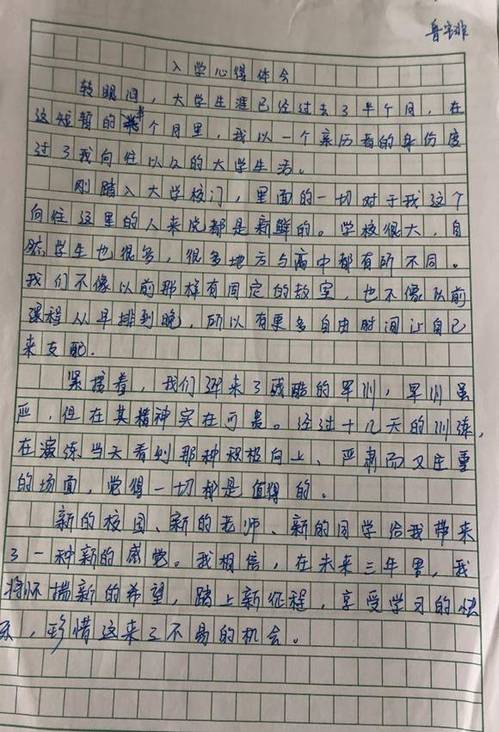 鲁宇非
入学心得体会
转眼间，大学生涯已经过去了半个月，在
这短暂的半个月里，我以一个亲历者的身份度
过了我向往以久的大学生活。
刚踏入大学校门，里面的一切对于我这个
向往这里的人来说都是新鲜的。学校很大，自
然学生也很多，很多地方与高中都有所不同。
我们不像以前那样有固定的教室，也不像以前
课程从早排到晚，所以有更多自由时间让自己
来支配.
紧接着，我们迎来了残酷的军训，军训虽
严，但在其精神实在可贵。经过十几天的训练，
在演练当天看到那种积极向上、严肃而又庄重
的场面，觉得一切都是值得的。
新的校园、新的老师、新的同学给我带来
了一种新的感觉。我相信，在未来三年里，我
将怀揣新的希望，踏上新征程，享受学习的快
乐，珍惜这来之不易的机会。